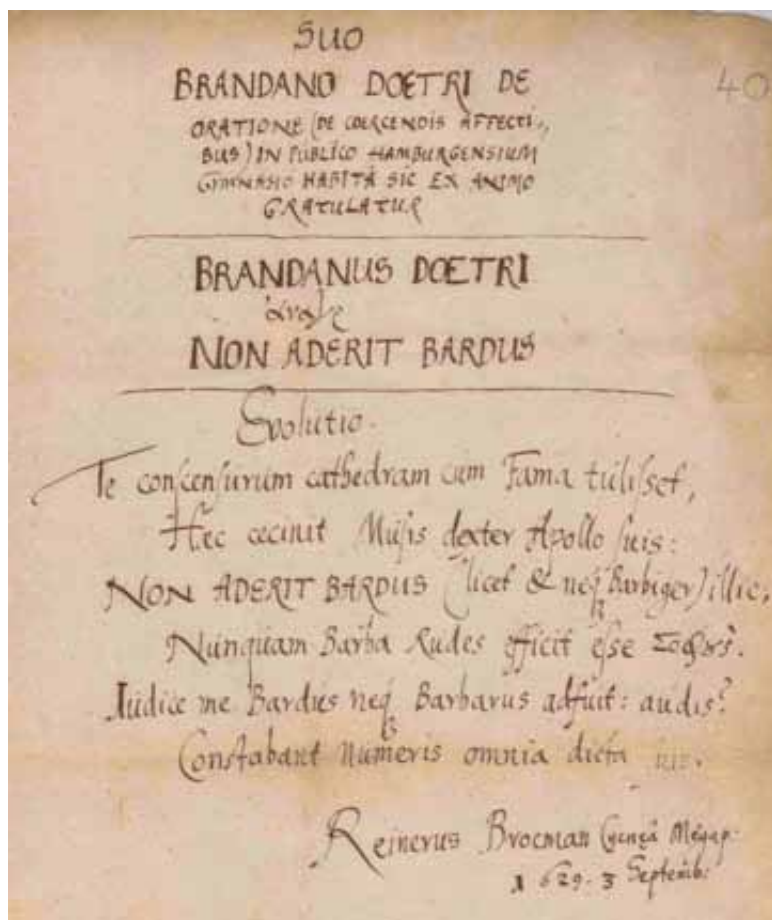 SUO
BRANDANO DŒTRI DE
ORATIONE (DE COERCENDIS AFFECTI,,
BUS) IN PUBLICO HAMBURGENSIUM
GYMNASIO HABITÂ SIC EX ANIMO
GRATULATUR
40
BRANDANUS DŒTRI
NON ADERIT BARDUS
Evolutio.
Te conſcenſurum cathedram cùm Fama tuliſſet,
Hec cecinit Muſis dexter Apollo ſuis:
NON ADERIT BARDUS (licet & neq; Barbiger) illic,
Nunquam Barba Rudes efficit eſſe σοφούς.
Iudice me Bardus neq; Barbarus adfuit: audis?
Conſtabant Numeris omnia dicta
Reinerus Brocman Megap.
1629. 3 Septemb: